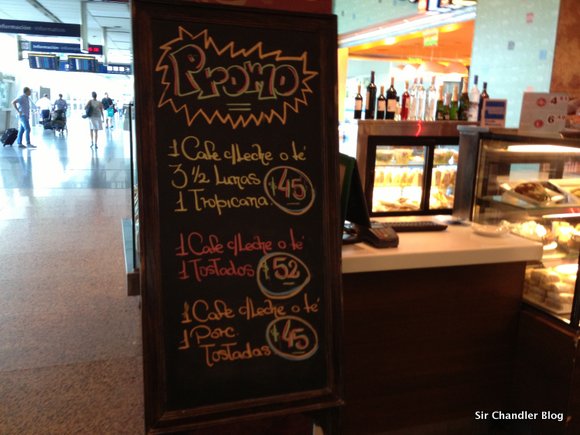 Información
Información
Promo
1 Cafe c/Leche o té
3 ½ Lunas
$45
1 Tropicana
1 Cafe c/Leche o té
1 Tostados
$52
1 Cafe c/Leche o té
1 Porc
$45
Tostadas
Sir Chandler Blog